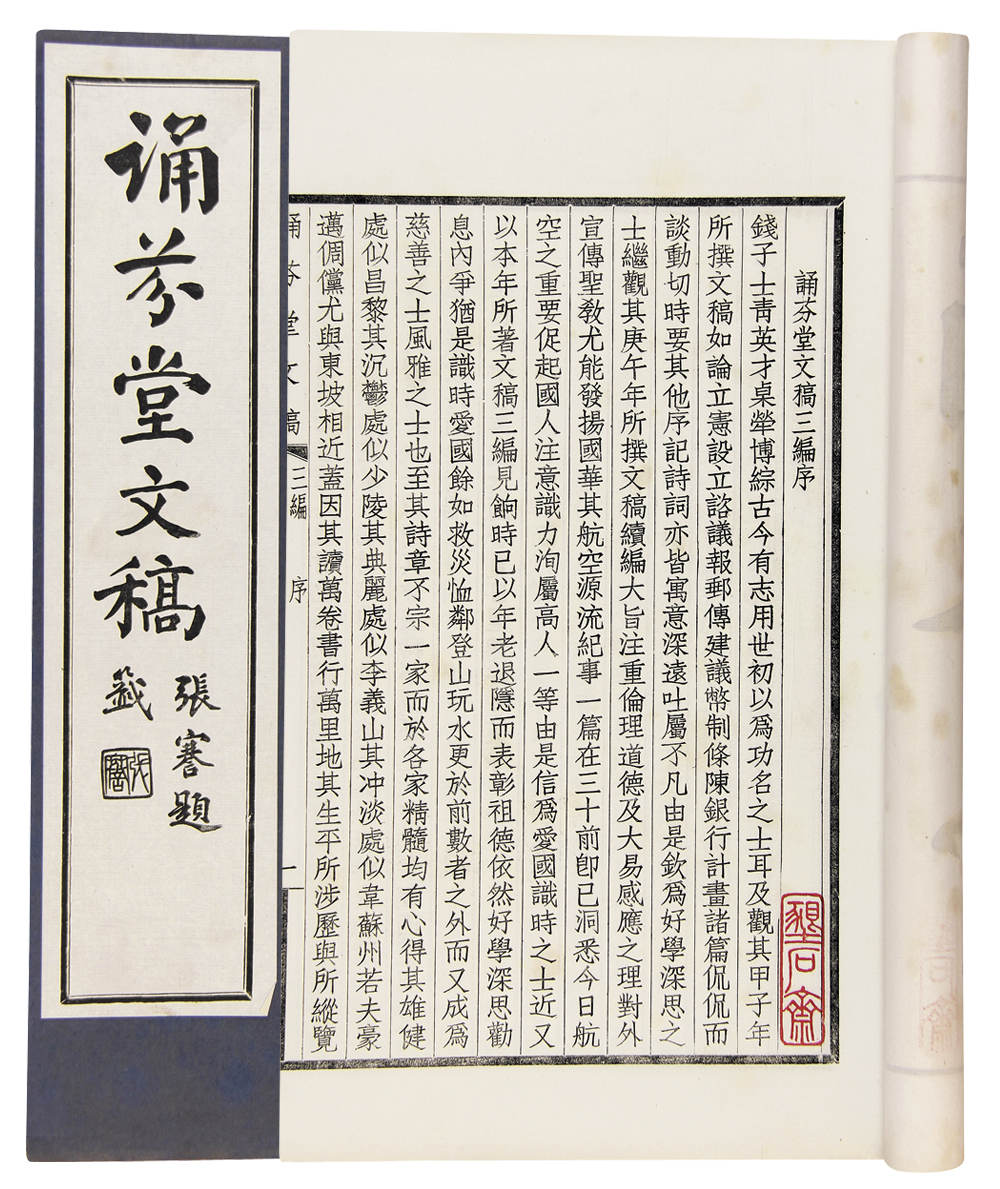 誦芬堂文稿
張謇題
籤
張謇
誦芬堂文稿三編序
錢子士靑英才桌犖博綜古今有志用世初以爲功名之士耳及觀其甲子年
所撰文稿如論立憲設立諮議報郵傳建議幣制條陳銀行計畫諸篇侃侃而
談動切時要其他序記詩詞亦皆寓意深遠吐屬不凡由是欽爲好學深思之
士繼觀其庚午年所撰文稿續編大旨注重倫理道德及大易感應之理對外
宣傳聖敎尤能發揚國華其航空源流紀事一篇在三十前卽已洞悉今日航
空之重要促起國人注意識力洵屬高人一等由是信爲愛國識時之士近又
以本年所著文稿三編見餉時已以年老退隱而表彰祖德依然好學深思勸
息內爭猶是識時愛國餘如救災恤鄰登山玩水更於前數者之外而又成爲
慈善之士風雅之士也至其詩章不宗一家而於各家精髓均有心得其雄健
處似昌黎其沉鬱處似少陵其典麗處似李義山其冲淡處似韋蘇州若夫豪
邁倜儻尤與東坡相近蓋因其讀萬卷書行萬里地其生平所涉歷與所縱覽
誦芬堂文稿 三編 序 一